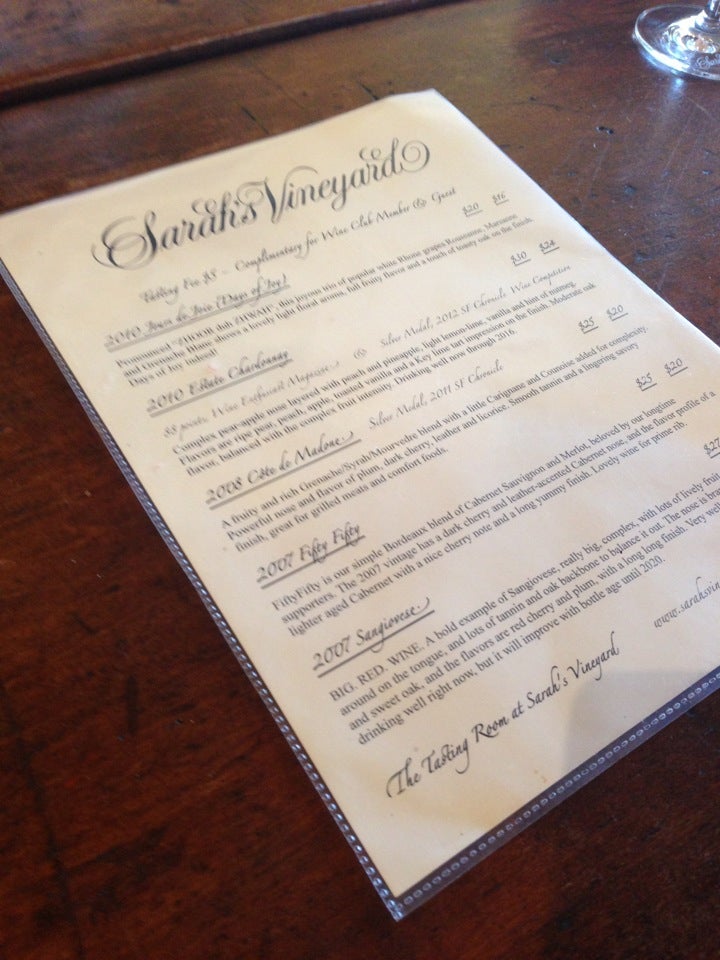 Sarah's Vineyard
Tasting Fee $5 - Complimentary for Wine Club Member & Guest
2010 Jours de Joie (Days of Joy) $20 $16
Pronounced "ZHOOR duh ZHWAH", this joyous trio of popular white Rhone grapes Roussanne, Marsanne
and Grenache Blanc shows a lovely light floral aroma, full fruity flavor and a touch of toasty oak on the finish.
Days of Joy indeed!
2010 Estate Chardonnay $30 $24
88 points, Wine Enthusiast Magazine & Silver Medal, 2012 SF Chronicle Wine Competition
Complex pear-apple nose layered with peach and pineapple, light lemon-lime, vanilla and hint of nutmeg.
Flavors are ripe pear, peach, apple, toasted vanilla and a Key lime tart impression on the finish. Moderate oak
flavor, balanced with the complex fruit intensity. Drinking well now through 2016.
2008 Côte de Madone Silver Medal, 2011 SF Chronicle $25 $20
A fruity and rich Grenache/Syrah/Mourvedre blend with a little Carignane and Counoise added for complexity.
Powerful nose and flavor of plum, dark cherry, leather and licorice. Smooth tannin and a lingering savory
finish, great for grilled meats and comfort foods.
2007 Fifty Fifty $25 $20
FiftyFifty is our simple Bordeaux blend of Cabernet Sauvignon and Merlot, beloved by our longtime
supporters. The 2007 vintage has a dark cherry and leather-accented Cabernet nose, and the flavor profile of a
lighter aged Cabernet with a nice cherry note and a long yummy finish. Lovely wine for prime rib.
2007 Sangiovese
BIG. RED. WINE. A bold example of Sangiovese, really big, complex, with lots of lively fruit
around on the tongue, and lots of tannin and oak backbone to balance it out. The nose is
and sweet oak, and the flavors are red cherry and plum, with a long long finish. Very
drinking well right now, but it will improve with bottle age until 2020.
The Tasting Room at Sarah's Vineyard